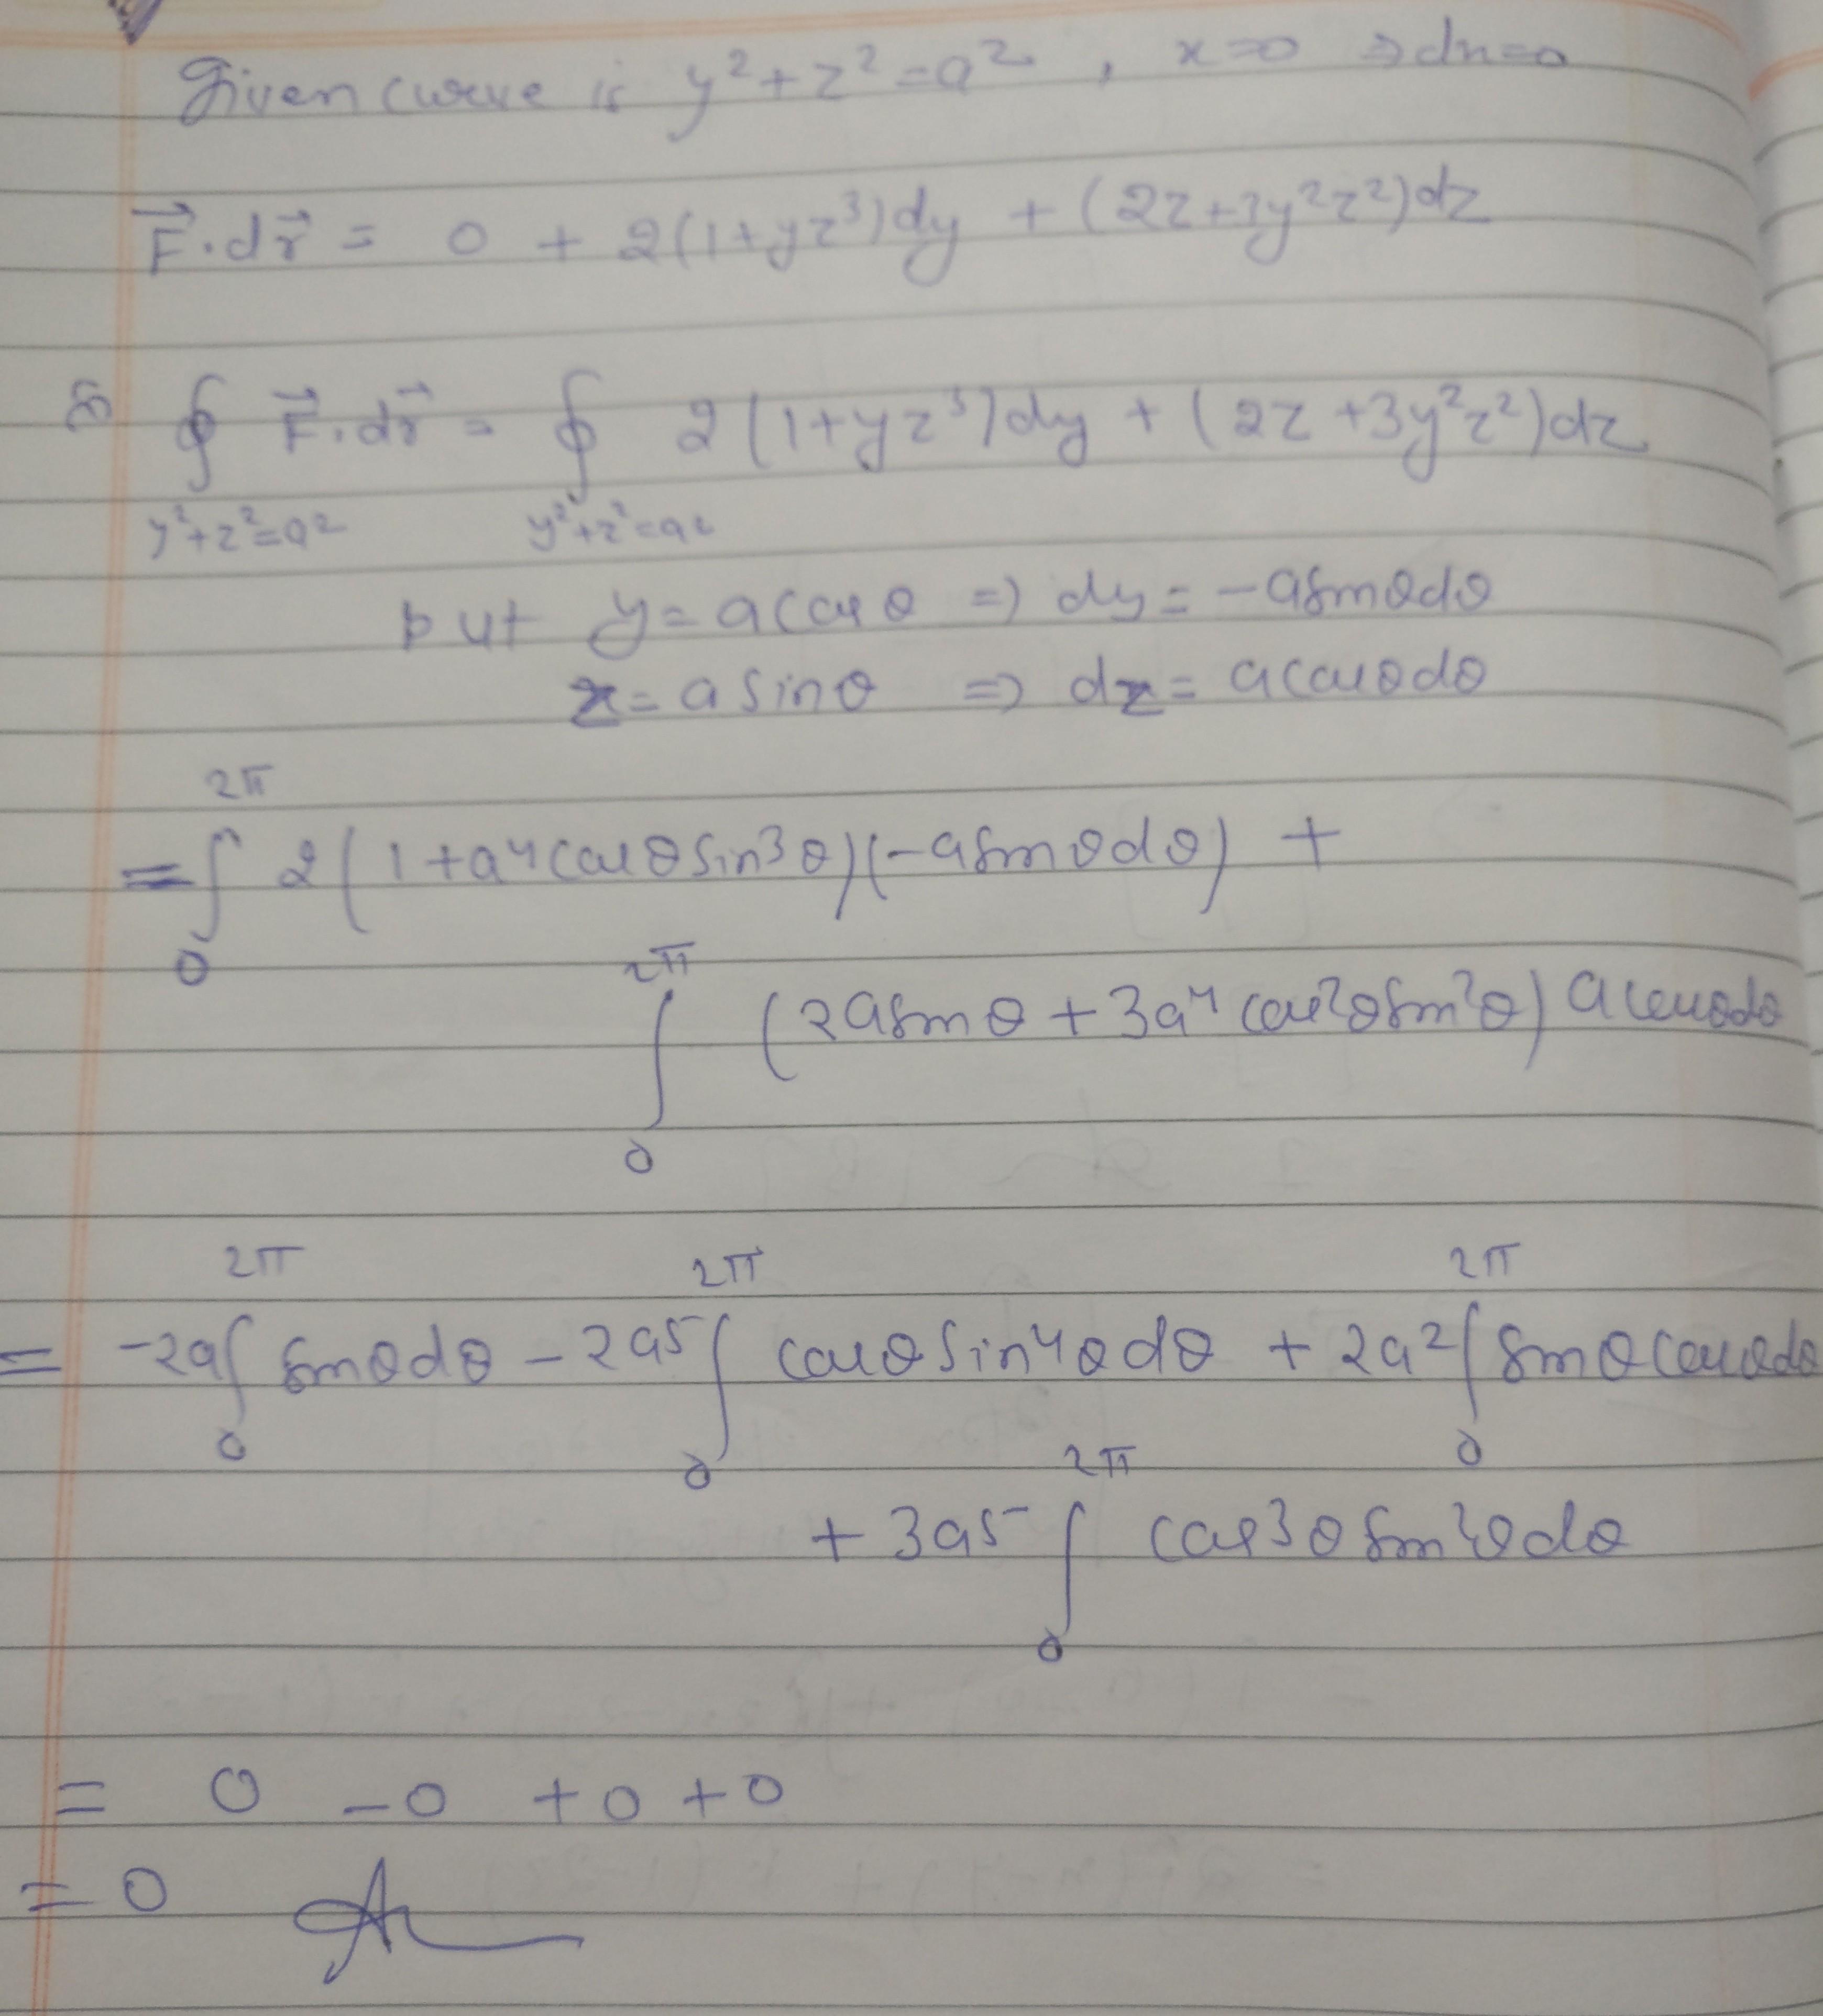 Given curve is y²+z²=a², x=0 ⇒dx=0
F⃗.dr⃗ = 0 + 2(1+yz³)dy + (2z+3y²z²)dz
so ∮ F⃗.dr⃗ = ∮ 2(1+yz³)dy + (2z+3y²z²)dz
y²+z²=a² y²+z²=a²
put y=acosθ ⇒ dy=-asinθdθ
z=asinθ ⇒ dz=acosθdθ
=∫₀^2π 2(1+a⁴cosθsin³θ)(-asinθdθ) +
∫₀^2π (2asinθ+3a⁴cos²θsin²θ)acosθdθ
= -2a∫₀^2π sinθdθ -2a⁵∫₀^2π cosθsin⁴θdθ +2a²∫₀^2π sinθcosθdθ
+3a⁵∫₀^2π cos³θsin²θdθ
= 0 -0 +0 +0
= 0